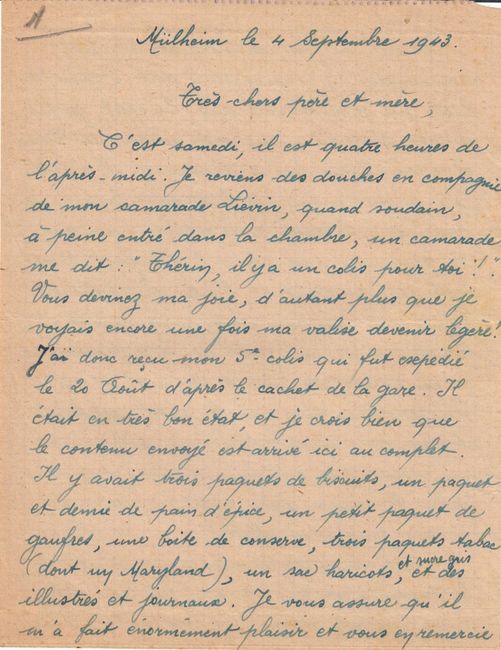 1
Mülheim le 4 Septembre 1943.
Très chers père et mère,
C'est samedi, il est quatre heures de
l'après-midi. Je reviens des douches en compagnie
de mon camarade Liévin, quand soudain,
à peine entré dans la chambre, un camarade
me dit : "Thérin, il y a un colis pour toi !"
Vous devinez ma joie, d'autant plus que je
voyais encore une fois ma valise devenir légère !
J'ai donc reçu mon 5e colis qui fut expédié
le 20 Août d'après le cachet de la gare. Il
était en très bon état, et je crois bien que
le contenu envoyé est arrivé ici au complet.
Il y avait trois paquets de biscuits, un paquet
et demie de pain d'épice, un petit paquet de
gaufres, une boite de conserve, trois paquets tabac
(dont un Maryland), un sac haricots, et sucre gris et des
illustrés et journaux. Je vous assure qu'il
m'a fait énormément plaisir et vous en remercie